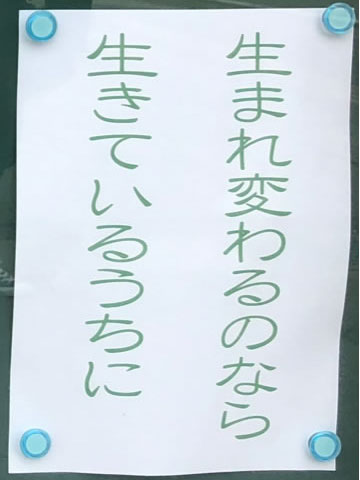 生まれ変わるのなら
生きているうちに